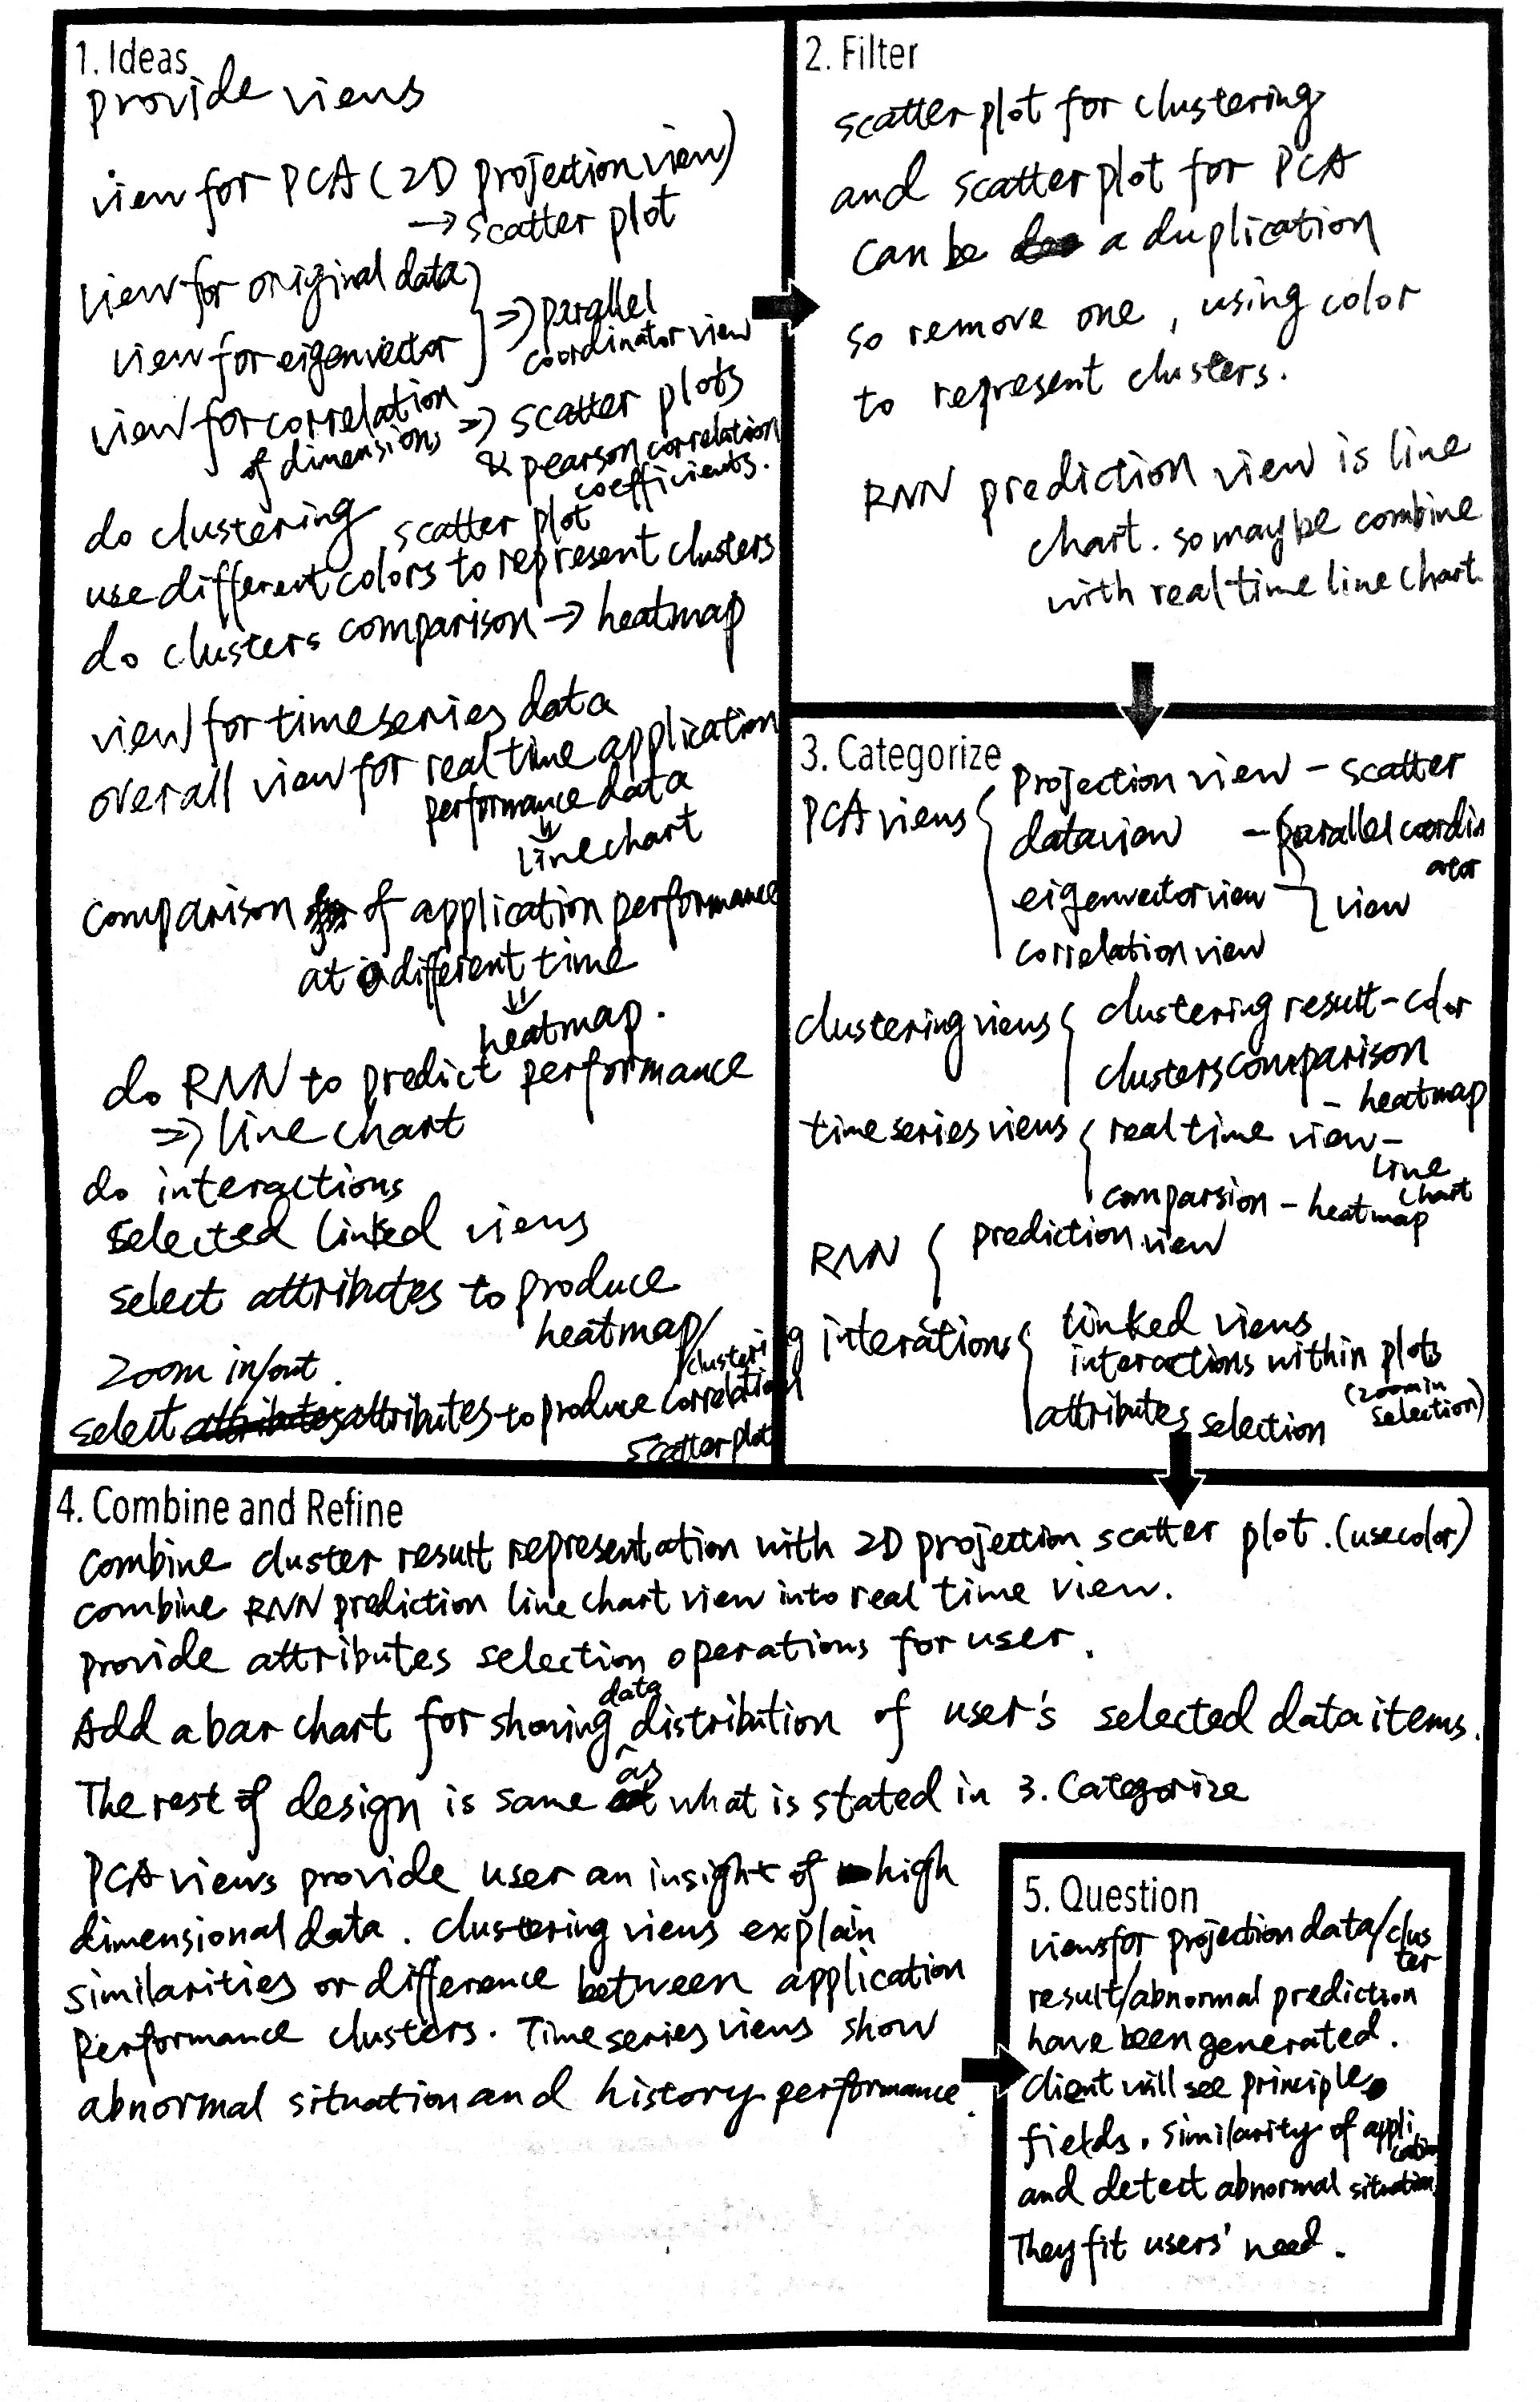 1. Ideas
provide views
view for PCA (2D projection view)
→ scatter plot
view for original data
view for eigenvector
⇒ parallel
coordinator view
view for correlation
of dimensions
⇒ scatter plots
& pearson correlation
coefficients.
do clustering scatter plot
use different colors to represent clusters
do clusters comparison → heatmap
view for time series data
overall view for real time application
performance data
⇓
line chart
comparison of application performance
at different time
⇓
heatmap.
do RNN to predict performance
⇒ line chart
do interactions
selected linked views
select attributes to produce
heatmap/
clustering
zoom in/out.
select attributes to produce correlation
scatter plot
2. Filter
scatter plot for clustering
and scatter plot for PCA
can be a duplication
so remove one, using color
to represent clusters.
RNN prediction view is line
chart. so maybe combine
with real time line chart.
3. Categorize
PCA views { projection view - scatter
data view - parallel coordin
ator
eigenvector view - view
correlation view
clustering views { clustering result - color
clusters comparison
- heatmap
time series views { real time view -
line
chart
comparsion - heatmap
RNN { prediction view
interations { linked views
interactions within plots
(zoom in
selection)
attributes selection
4. Combine and Refine
combine cluster result representation with 2D projection scatter plot. (use color)
combine RNN prediction line chart view into real time view.
provide attributes selection operations for user.
Add a bar chart for showing data distribution of user's selected data items.
The rest of design is same as what is stated in 3. Categorize
PCA views provide user an insight of high
dimensional data. clustering views explain
similarities or difference between application
performance clusters. Time series views show
abnormal situation and history performance.
5. Question
views for projection data/clus
ter
result/abnormal prediction
have been generated.
client will see principle
fields. similarity of appli
cation
and detect abnormal situation.
They fit users' need.